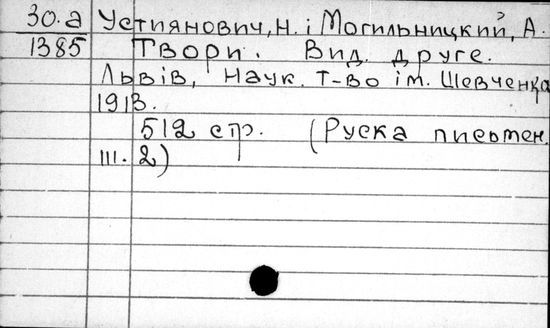 30.а Устиянович, Н. і Могильницкий, А.
1385 Твори. Вид. друге.
Львів, Наук. т-во ім. Шевченка
1913.
512 стр. (Руска писмен.
III. 2)